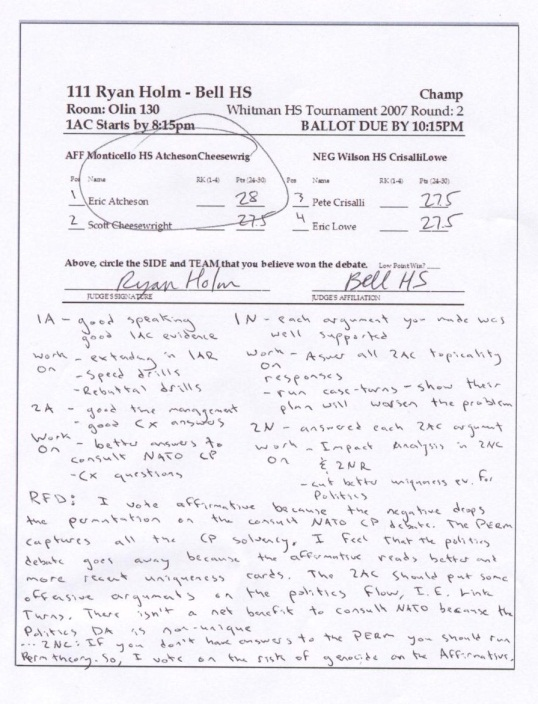 111 Ryan Holm - Bell HS Champ
Room: Olin 130 Whitman HS Tournament 2007 Round: 2
1AC Starts by 8:15pm BALLOT DUE BY 10:15PM
AFF Monticello HS AtchesonCheesewrig NEG Wilson HS CrisalliLowe
Pos Name RK (1-4) Pts (24-30) Pos Name RK (1-4) Pts (24-30)
1 Eric Atcheson 28 3 Pete Crisalli 27.5
2 Scott Cheesewright 27.5 4 Eric Lowe 27.5
Above, circle the SIDE and TEAM that you believe won the debate. Low Point Win?
Ryan Holm Bell HS
JUDGE'S SIGNATURE JUDGE'S AFFILIATION
1A - good speaking
good 1AC evidence
work on - extending in 1AR
- Speed drills
- Rebuttal drills
2A - good time management
- good CX answers
Work on - better answers to
consult NATO CP
- CX questions
1N - each argument you made was
well supported
Work on - Aswer all 2AC topicality
responses
- run case-turns - show their
plan will worsen the problem
2N - answered each 2AC argument
work on - Impact Analysis in 2NC
& 2NR
- cut better uniqness ev. For
Politics
RFD: I vote affirmative because the negative drops
the permutation on the consult NATO CP debate. The PERM
captures all the CP solvency. I feel that the politics
debate goes away because the affirmative reads better and
more recent uniqueness cards. The 2AC should put some
offensive arguments on the politics flow, I.E. Link
Turns. There isn't a net benefit to consult NATO because the
Politics DA is non-unique
... 2NC: If you don't have answers to the PERM you should run
Perm theory. So, I vote on the risk of genocide on the Affirmative.